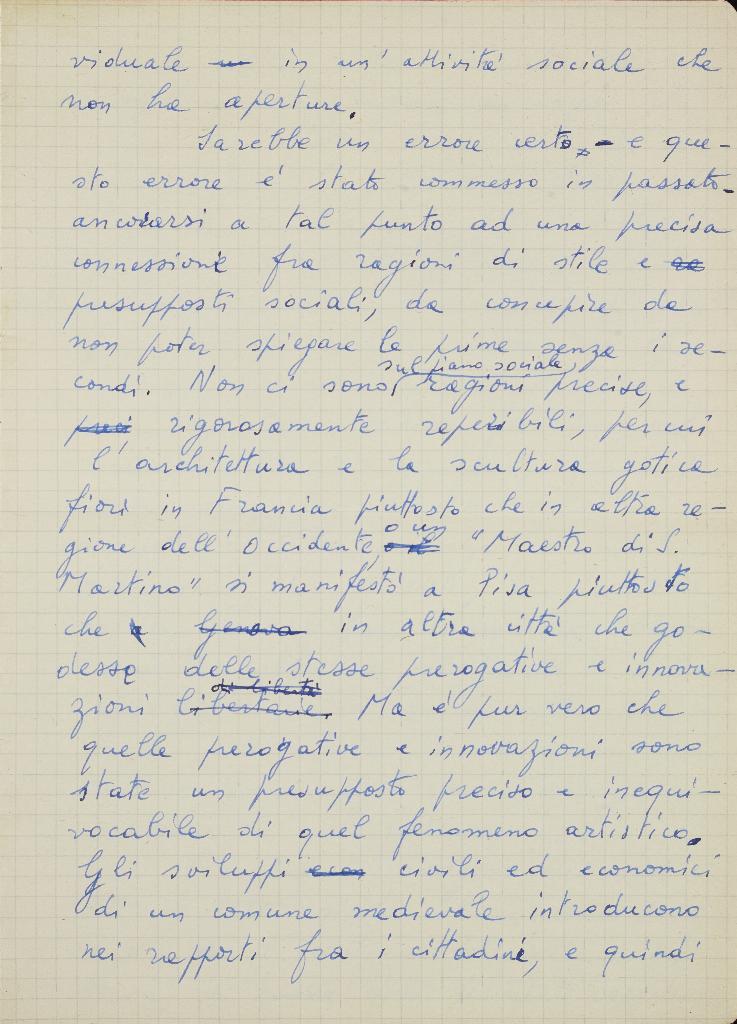 viduale in un' attività sociale che
non ha aperture.
Sarebbe un errore certo, - e que-
sto errore è stato commesso in passato -
ancorarsi a tal punto ad una precisa
connessione fra ragioni di stile e
presupposti sociali, da concepire da
non poter spiegare le prime senza i se-
sul piano sociale,
condi. Non ci sono, ragioni precise, e
preci rigorosamente reperibili, per cui
l'architettura e la scultura gotica
fiorì in Francia piuttosto che in altra re-
o un
gione dell'Occidente, "Maestro di S.
Martino" si manifestò a Pisa piuttosto
che a Genova in altra città che go-
desse delle stesse prerogative e innova-
di libertà
zioni libertarie. Ma è pur vero che
quelle prerogative e innovazioni sono
state un presupposto preciso e inequi-
vocabile di quel fenomeno artistico.
Gli sviluppi econ civili ed economici
di un comune medievale introducono
nei rapporti fra i cittadini, e quindi